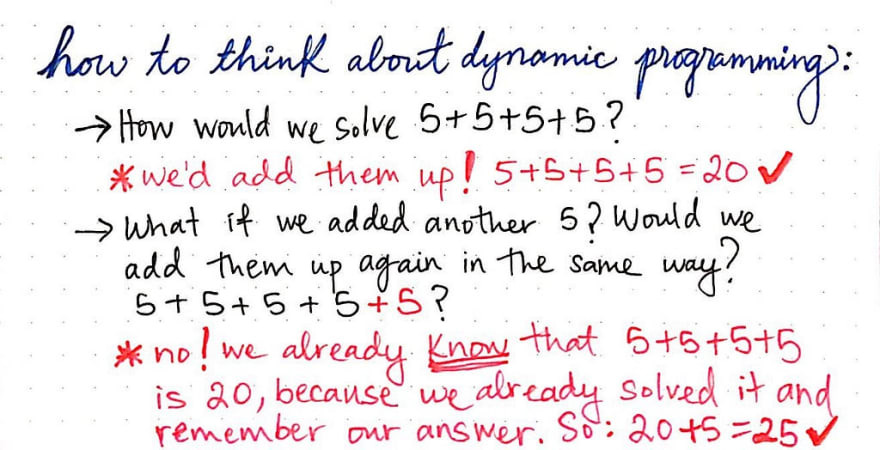 how to think about dynamic programming:
→ How would we solve 5+5+5+5?
* we'd add them up! 5+5+5+5 = 20 ✓
→ What if we added another 5? Would we
add them up again in the same way?
5 + 5 + 5 + 5 + 5 ?
* no! we already know that 5+5+5+5
is 20, because we already solved it and
remember our answer. So: 20+5=25 ✓